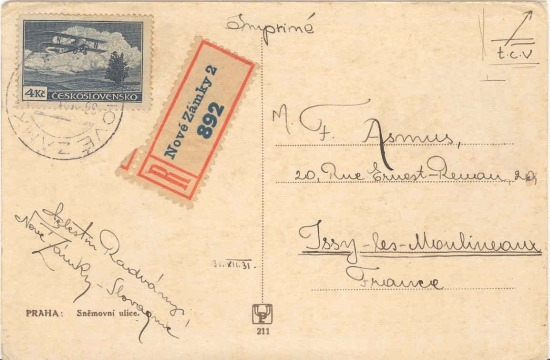 Imprimé
t.c.v
4Kč
ČESKOSLOVENSKO
NOVÉ ZÁMKY
R
Nové Zámky 2
892
M. F. Asmus,
20, Rue Ernest-Renan, 20
Issy-les-Moulineaux
France
Radványi
Nové Zámky - Slovaquie
31.XII.31.
PRAHA: Sněmovní ulice.
211